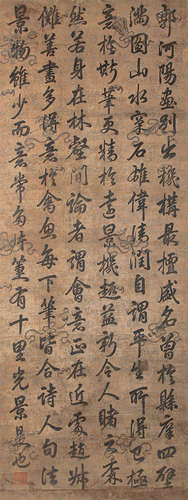 郭河陽畫別出機構最擅盛名曾於縣廨四壁
滿圖山水窠石雄偉清潤自謂平生所得已極
意於妙筆更精於遠景機趣益新令人睹之森
然若身在林壑間論者謂會意正在近處趙昨
儺善畫多得意於禽魚每下筆皆合詩人句法
景物雖少而意常多片篁有十里光景是也